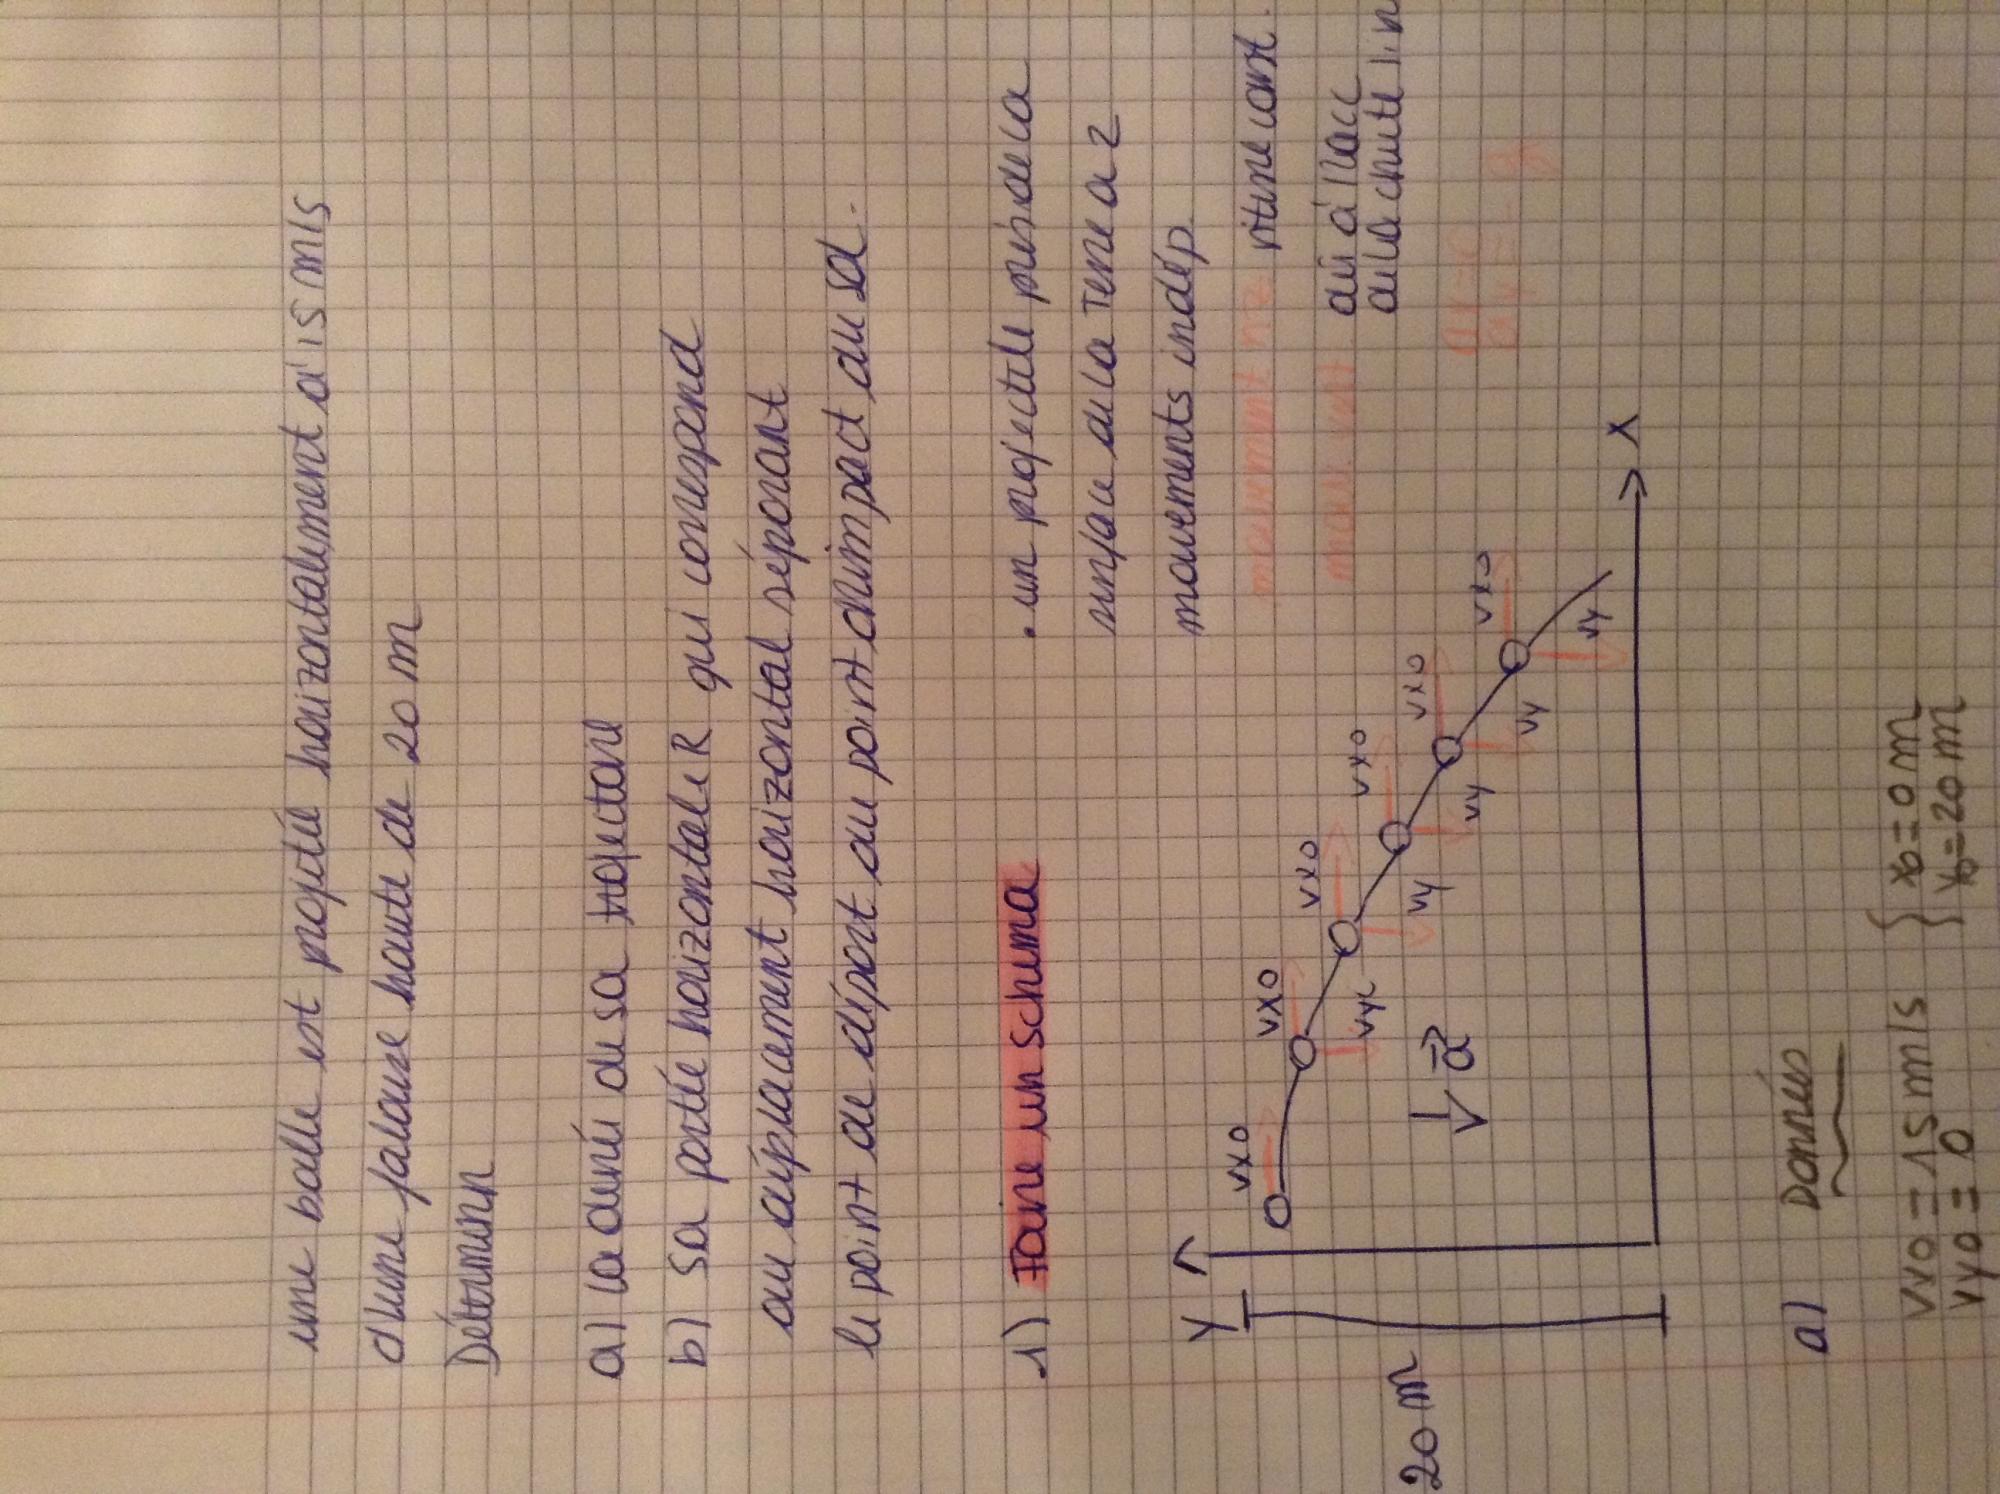 une balle est projetée horizontalement à 15 m/s
d'une falaise haute de 20 m
Déterminer
a) la durée de sa trajectoire
b) sa portée horizontale R qui correspond
au déplacement horizontal séparant
le point de départ au point d'impact au sol.
1) Faire un schema
. un projectile près de la
surface de la Terre a 2
mouvements indép.
mouvement hz vitesse const.
mouv. vert dû à l'acc
de la chute lin
ax=0
ay=-g
Y
20 m
vx0
vx0
vx0
vx0
vx0
vx0
vy
vy
vy
vy
vy
a
X
a) Données
vx0 = 15 m/s { x0=0 m
vy0 = 0 { y0=20 m